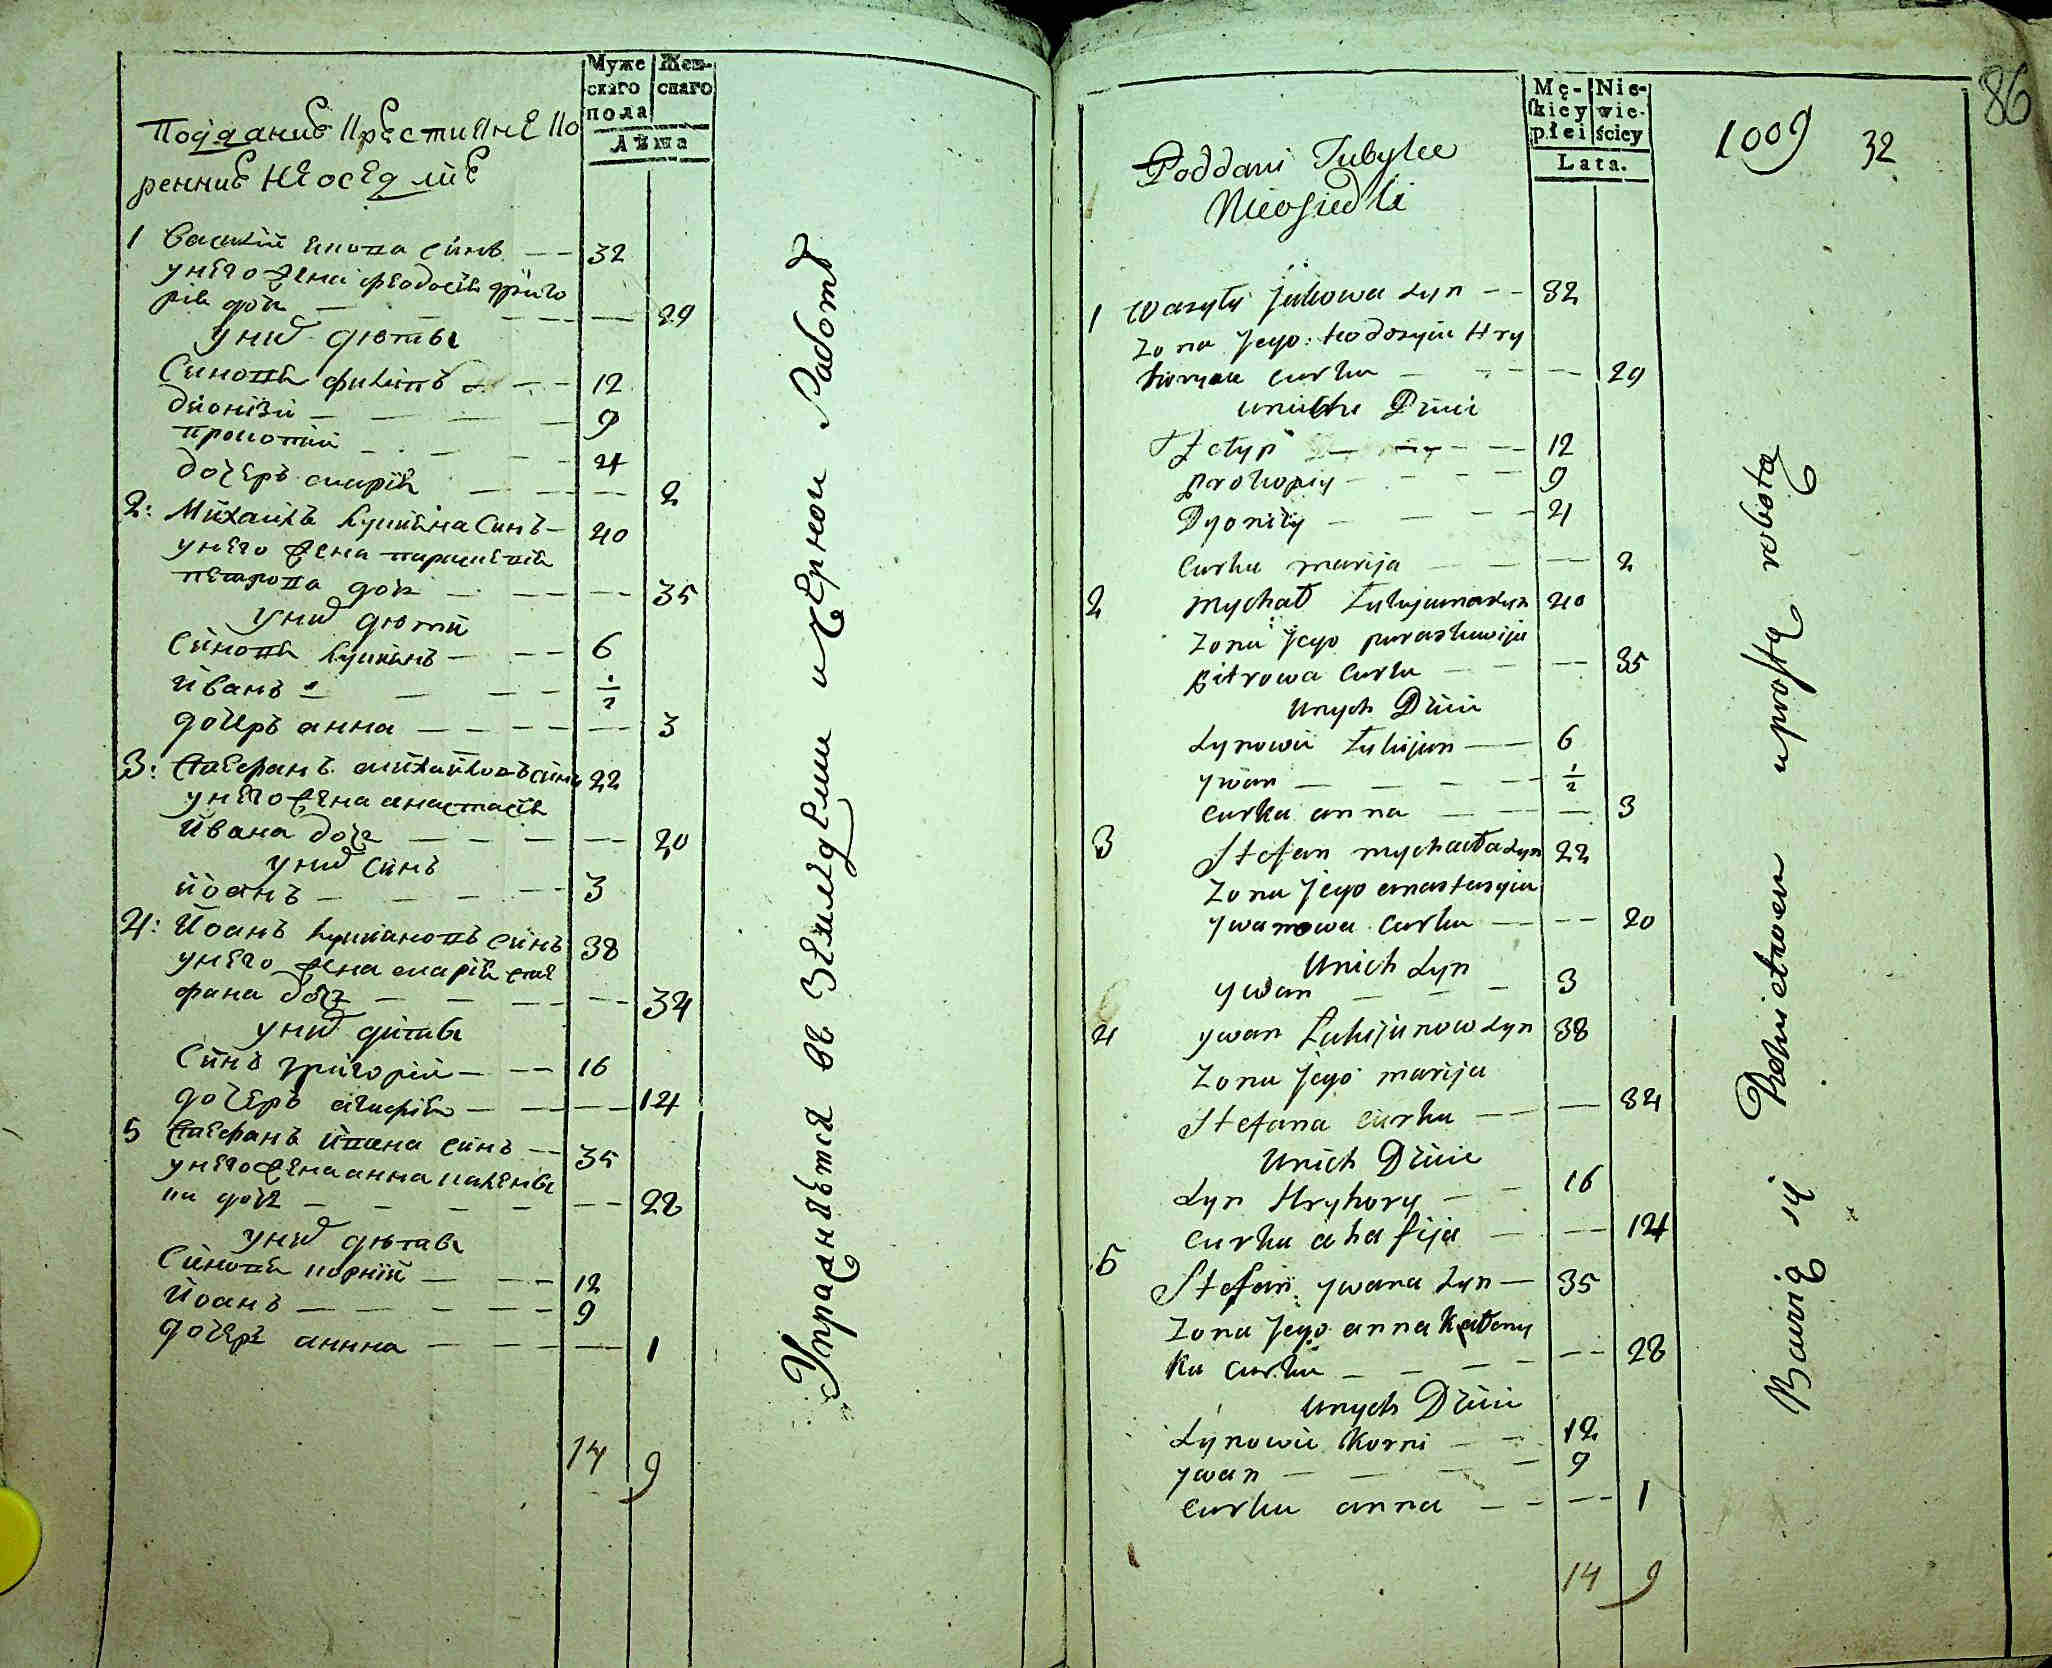 Муже
скаго
пола
Жен-
скаго
Лѣта
Подданиѣ Крестиянѣ Ко
рѣнниѣ Нѣосѣдлиѣ
1 Василій Якова синъ 32
у нѣго жена феодосія григо
рія дочь 29
у них дюти
Синовя филипъ 12
Дионізи 9
прокопій 4
дочеръ марія 2
2: Михаилъ Лукияна Синъ 40
у нѣго жена параскевія
петрова дочь 35
у них дюти
Синовя Лукиянъ 6
Иванъ 1/2
дочеръ анна 3
3: Стефанъ михайловъ синъ 22
у нѣго жена анастасія
Ивана дочь 20
у них синъ
иоанъ 3
4: Иоанъ Лукияновъ синъ 38
у нѣго жена марія сте
фана дочь 34
у них дити
Синъ григорій 16
дочеръ агафія 14
5 Стефанъ Ивана синъ 35
у нѣго жена анна каленѣ
ка дочь 28
у них дюти
Синовя корній 12
Иоанъ 9
дочерь анна 1
14 9
Упражняѣтся въ Зѣмлѣдѣли и чѣрной Работѣ
Mę-
skiey
płei
Nie-
wie-
ściey
Lata.
1009 32
86
Poddani Tubylce
Nieosiedli
1 Wasyly Jakowa syn 32
Zona Jego teodozyia Hry
horyia curka 29
unichu Dzici
Fełyp 12
prokopiy 9
Dyonizy 4
Curka marija 2
2 mychał Łukijana syn 40
Zona Jego paraskewija
pitrowa Curka 35
Unych Dzici
synowie Łukijan 6
ywan 1/2
curka anna 3
3 Stefan mychaiła syn 22
Zona Jego anastasyia
ywanowa curka 20
Unich syn
ywan 3
4 ywan Łukijanow syn 38
Zona Jego marija
Stefana curka 34
Unich Dzici
syn Hryhory 16
curka ahafija 14
5 Stefan ywana syn 35
Zona Jego anna Kałeny
ka curka 28
Unych Dzici
synowie Korni 12
ywan 9
curka anna 1
14 9
Bawią się Rolnictwem y prostą robotą